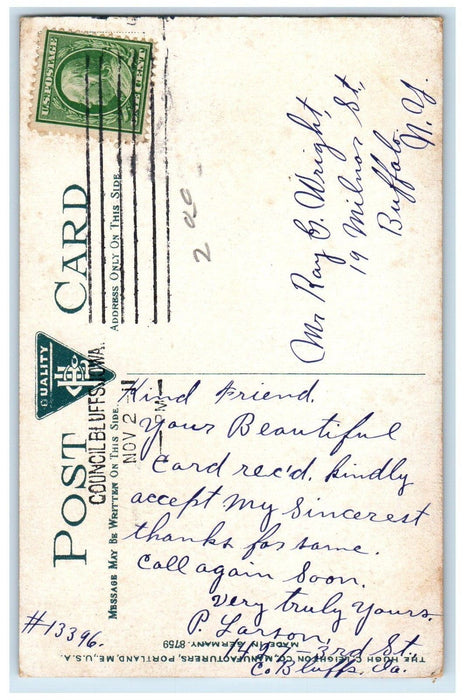 U.S. POSTAGE
ONE CENT
POST CARD
QUALITY
ADDRESS ONLY ON THIS SIDE.
MESSAGE MAY BE WRITTEN ON THIS SIDE.
COUNCIL BLUFFS, IOWA.
NOV 2
PM
Mr Ray G. Wright,
19 Milnor St,
Buffalo,
N. Y.
Kind Friend.
Your Beautiful
Card rec'd. kindly
accept My Sincerest
thanks for same.
Call again Soon.
Very truly Yours.
P. Larson,
3rd St.
C. Bluffs, Ia.
#13396.
THE HUGH C. LEIGHTON CO., MANUFACTURERS, PORTLAND, ME., U.S.A.
MADE IN GERMANY. 8759